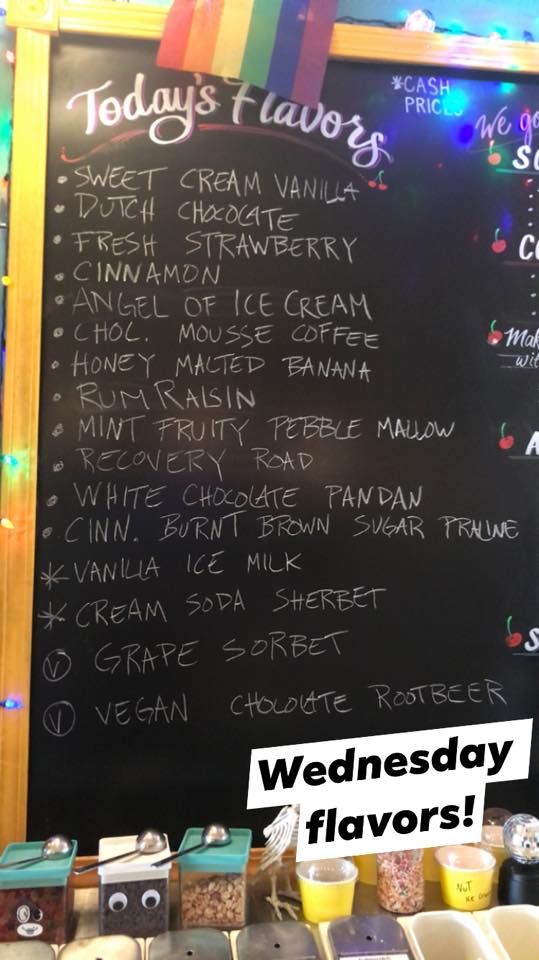 Today's Flavors
*CASH
PRICES
We go
• SWEET CREAM VANILLA
• DUTCH CHOCOLATE
• FRESH STRAWBERRY
• CINNAMON
• ANGEL OF ICE CREAM
• CHOL. MOUSSE COFFEE
• HONEY MALTED BANANA
• RUM RAISIN
• MINT FRUITY PEBBLE MALLOW
• RECOVERY ROAD
• WHITE CHOCOLATE PANDAN
• CINN. BURNT BROWN SUGAR PRALINE
* VANILLA ICE MILK
* CREAM SODA SHERBET
Ⓥ GRAPE SORBET
Ⓥ VEGAN CHOCOLATE ROOTBEER
Mak
wit
Wednesday
flavors!
NUT